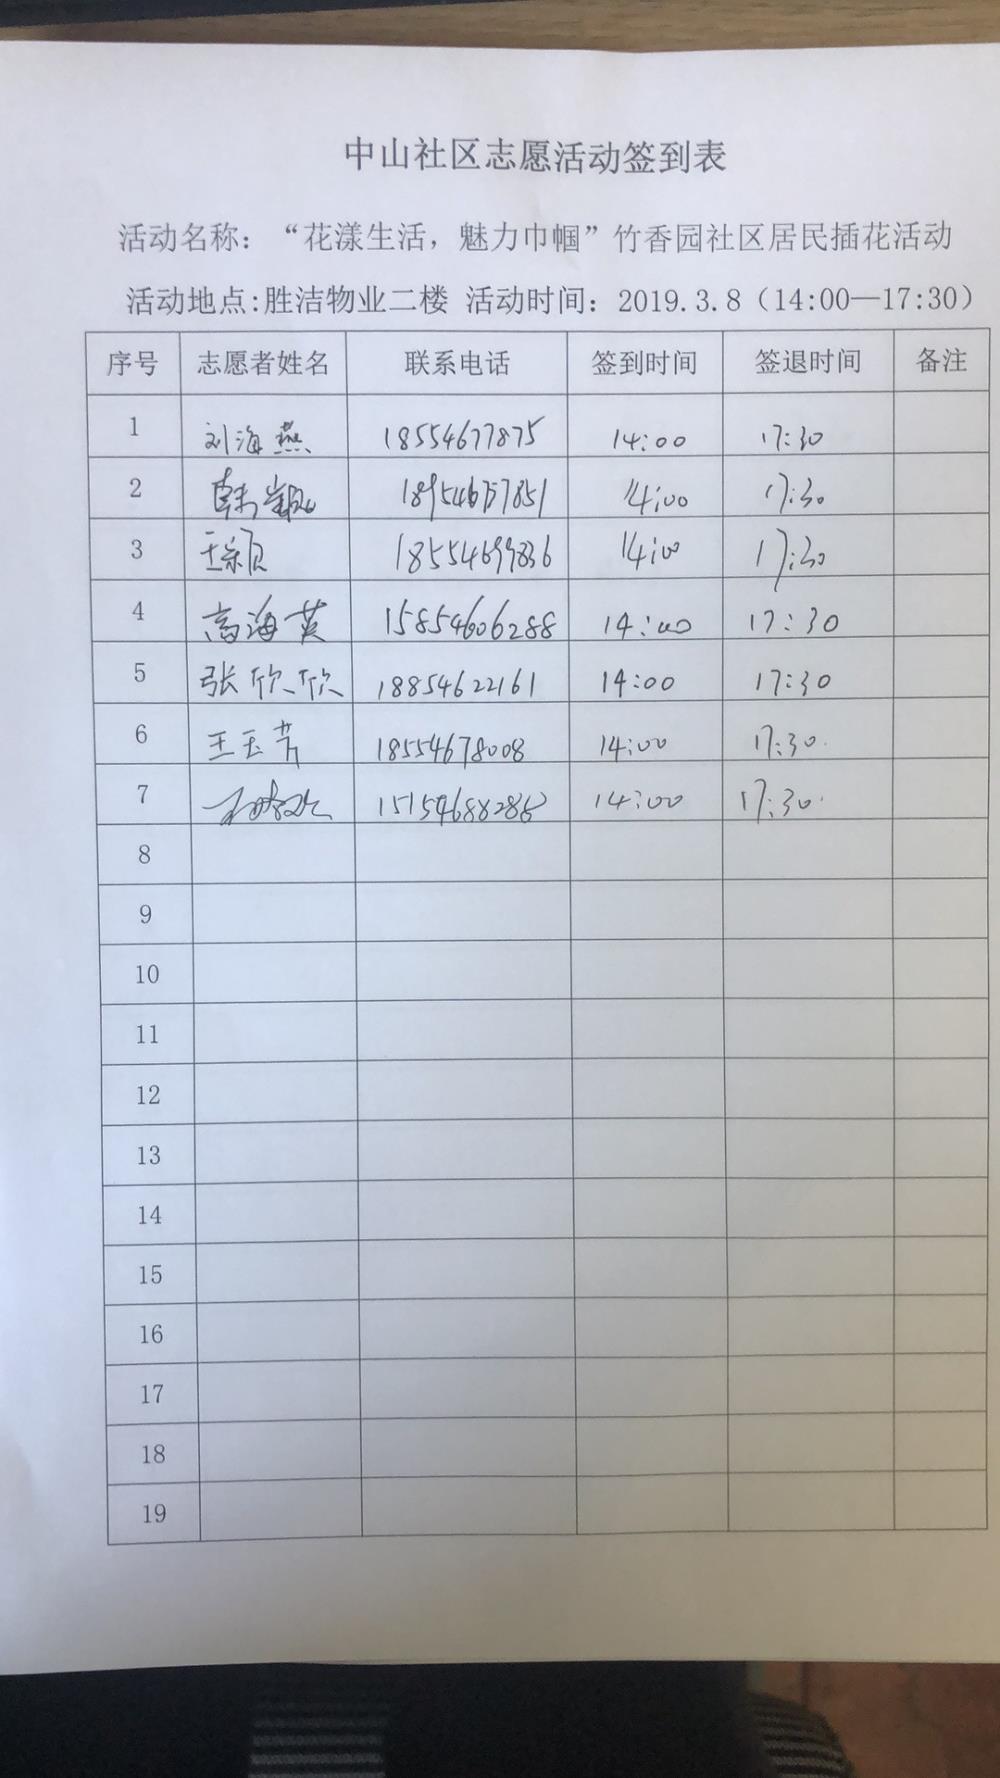 中山社区志愿活动签到表
活动名称：“花漾生活，魅力巾帼”竹香园社区居民插花活动
活动地点:胜洁物业二楼 活动时间：2019.3.8（14:00—17:30）
序号 志愿者姓名 联系电话 签到时间 签退时间 备注
1 刘海燕 18554677875 14:00 17:30
2 韩 14:00 17:30
3 王 18554699836 14:00 17:30
4 高海英 15854606288 14:00 17:30
5 张欣欣 18854622161 14:00 17:30
6 王玉芳 18554678008 14:00 17:30
7 15154688286 14:00 17:30
8
9
10
11
12
13
14
15
16
17
18
19